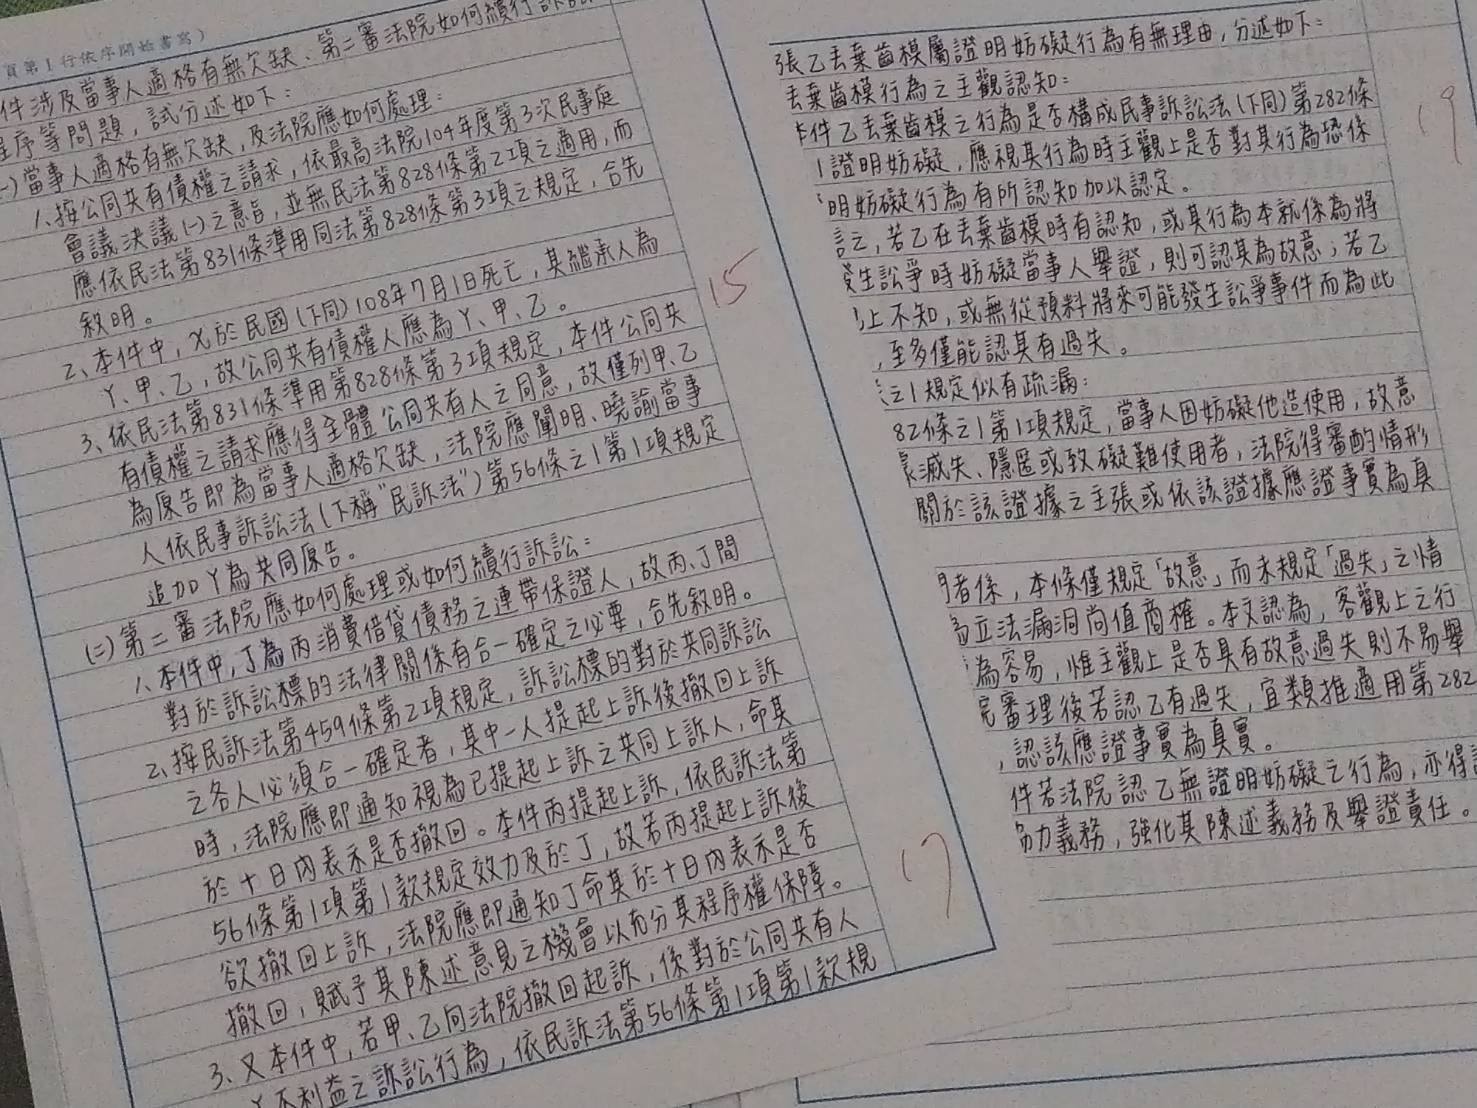 頁第1行依序開始書寫)
件涉及當事人適格有無欠缺、第二審法院如何續行訴訟
程序等問題，試分述如下：
(一)當事人適格有無欠缺，及法院應如何處理：
1、按公同共有債權之請求，依最高法院104年度第3次民事庭
會議決議(一)之意旨，並無民法第828條第2項之適用，而
應依民法第831條準用同法第828條第3項之規定，合先
敘明。
2、本件中，X於民國(下同)108年7月1日死亡，其繼承人為
Y、甲、乙，故公同共有債權人應為Y、甲、乙。
3、依民法第831條準用第828條第3項規定，本件公同共
有債權之請求應得全體公同共有人之同意，故僅列甲、乙
為原告即為當事人適格欠缺，法院應闡明、曉諭當事
人依民事訴訟法(下稱"民訴法")第56條之1第1項規定
追加Y為共同原告。
(二)第二審法院應如何處理或如何續行訴訟：
1、本件中，丁為丙消費借貸債務之連帶保證人，故丙、丁間
對於訴訟標的法律關係有合一確定之必要，合先敘明。
2、按民訴法第459條第2項規定，訴訟標的對於共同訴訟
之各人必須合一確定者，其中一人提起上訴後撤回上訴
時，法院應即通知視為已提起上訴之共同上訴人，命其
於十日內表示是否撤回。本件丙提起上訴，依民訴法第
56條第1項第1款規定效力及於丁，故若丙提起上訴後
欲撤回上訴，法院應即通知丁命其於十日內表示是否
撤回，賦予其陳述意見之機會以充分其程序權保障。
3、又本件中，若甲、乙向法院撤回起訴，係對於公同共有人
Y不利益之訴訟行為，依民訴法第56條第1項第1款規
15
17
張乙丟棄齒模屬證明妨礙行為有無理由，分述如下：
丟棄齒模行為之主觀認知：
件乙丟棄齒模之行為是否構成民事訴訟法(下同)第282條
1證明妨礙，應視其行為時主觀上是否對其行為恐係
明妨礙行為有所認知加以認定。
言之，若乙在丟棄齒模時有認知，或其行為本就係為將
發生訟爭時妨礙當事人舉證，則可認其為故意；若乙
上不知，或無從預料將來可能發生訟爭事件而為此
，至多僅能認其有過失。
之1規定似有疏漏：
82條之1第1項規定，當事人因妨礙他造使用，故意
滅失、隱匿或致礙難使用者，法院得審酌情形
關於該證據之主張或依該證據應證事實為真
者係，本條僅規定「故意」而未規定「過失」之情
立法漏洞尚值商榷。本文認為，客觀上之行
為容易，惟主觀上是否具有故意過失則不易舉
審理後若認乙有過失，宜類推適用第282
，認該應證事實為真實。
件若法院認乙無證明妨礙之行為，亦得
力義務，強化其陳述義務及舉證責任。
19